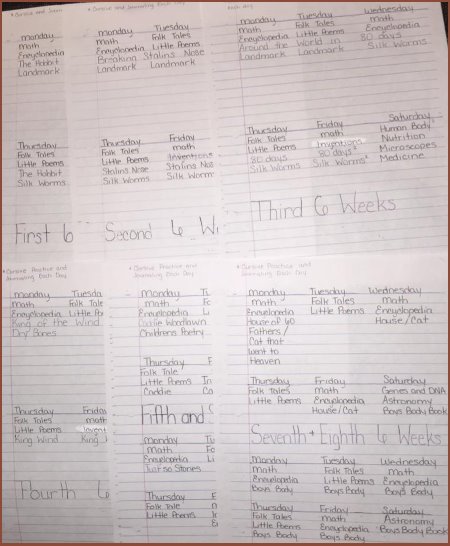 * Cursive and Journ
Monday
Math
Encyclopedia
The Hobbit
Landmark
Thursday
Folk Tales
Little Poems
The Hobbit
Silk Worms
First 6
* Cursive and Journaling Each Day
Monday Tuesday
Math Folk Tales
Encyclopedia Little Poems
Breaking Stalins Nose
Landmark Landmark
Thursday Friday
Folk Tales Math
Little Poems Inventions
Stalins Nose Stalins Nose
Silk Worms Silk Worm
Second 6 W
Each Day
Monday Tuesday Wednesday
Math Folk Tales Math
Encyclopedia Little Poems Encyclopedia
Around the World in 80 days
Landmark Landmark Silk Worms
Thursday Friday Saturday
Folk Tales Math Human Body
Little Poems Inventions Nutrition
80 days 80 days Microscopes
Silk Worms Silk Worms Medicine
Third 6 Weeks
* Cursive Practice and
Journaling Each Day
Monday Tuesda
Math Folk Tale
Encyclopedia Little Po
King of the Wind
Dry Bones
Thursday Friday
Folk Tales Math
Little Poems Invent
King Wind King
Fourth 6
* Cursive Practice and
Journaling Each Day
Monday Tu
Math Fo
Encyclopedia Li
Caddie Woodlawn
Childrens Poetry
Thursday F
Folk Tale
Little Poems In
Caddie Ca
Fifth and
Monday Tu
Math Fo
Encyclopedia Li
Just So Stories
Thursday F
Folk Tales
Little Poems
* Cursive Practice and
Journaling Each Day
Monday Tuesday Wednesday
Math Folk Tales Math
Encyclopedia Little Poems Encyclopedia
House of 60 House/Cat
Fathers/
Cat that
went to
Heaven
Thursday Friday Saturday
Folk Tales Math Genes and DNA
Little Poems Encyclopedia Astronomy
House/Cat Boys Body Book
Seventh + Eighth 6 Weeks
Monday Tuesday Wednesday
Math Folk Tales Math
Encyclopedia Little Poems Encyclopedia
Boys Body Boys Body Boys Body
Thursday Friday Saturday
Folk Tales Math Astronomy
Little Poems Encyclopedia Boys Body Book
Boys Body Boys Body